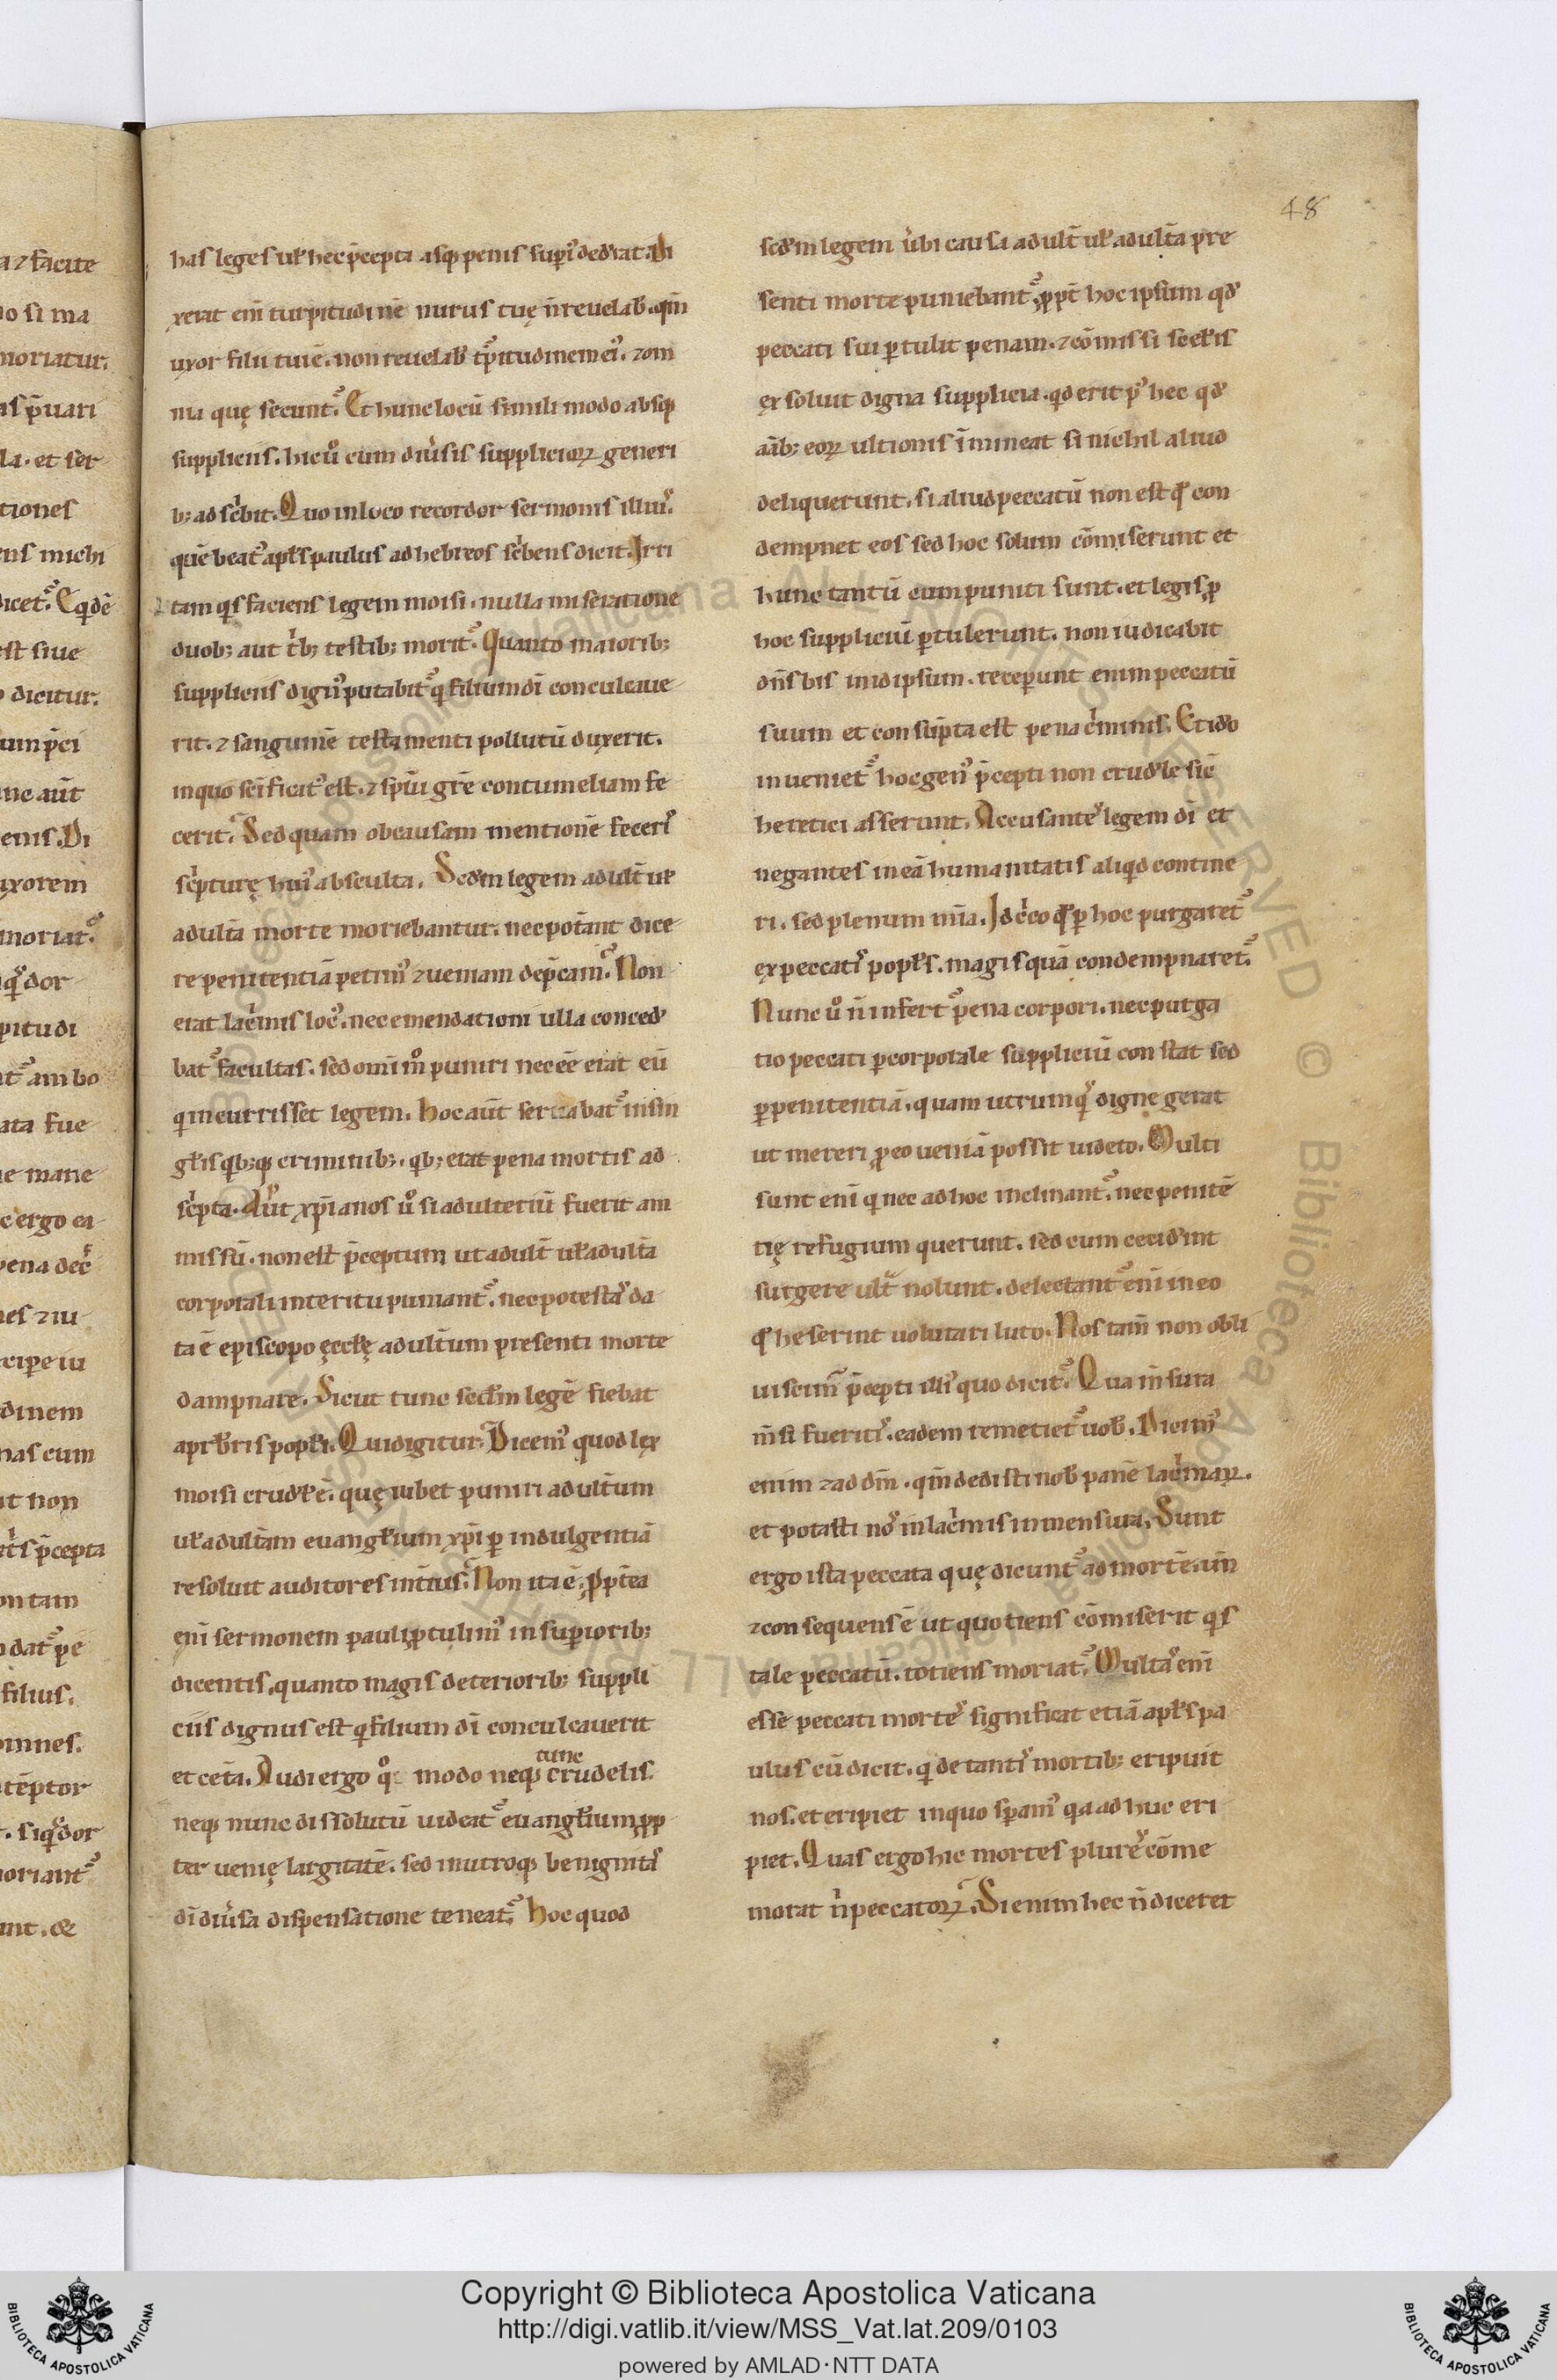 48
a ⁊ facite
o si ma
moriatur.
as p̄uari
la. et ser
tiones
ens michi
dicet᷑. Eqͥdē
est siue
o dicitur.
ump̄ci
ne aūt
enis. Di
uxorem
moriat᷑.
qͥdor
pitudi
nt᷑ ambo
ata fue
e mane
c ergo ea
pena dec̄
nes ⁊ iu
cipe iu
dinem
nas cum
ut non
p̄cepta
on tam
dat᷑ pe
filius.
omnes.
tēptor
. siqͥdor
moriant᷑
unt. &
has leges uł hec p̄cepta absqꝫ penis supiꝰ dederat. Di
xerat eni᷒ turpitudinē nurus tuę ñ reuelab. qm̄
uxor filii tui ē. non reuelab t̄pitudinem eiꝰ. ⁊ om
nia quę secunt᷑. Et hunc locū simili modo absqꝫ
suppliciis. hic ůo cum diu̓sis suppliciorꝝ generi
bꝫ adsc̓bit. Quo in loco recordor sermonis illiuꝰ.
quē beatꝰ apłs paulus ad hebreos sc̓bens dicit. Irri
tam qͥs faciens legem moisi. nulla miseratione
duobꝫ aut tͥbꝫ testibꝫ morit᷑. Quanto maioribꝫ
suppliciis dignꝰ putabit᷑ qͥ filium dī conculcaue
rit. ⁊ sanguinē testamenti pollutū duxerit.
in quo sc̄ificatꝰ est. ⁊ sp̄ui gr̄e contumeliam fe
cerit. Sed quam ob causam mentionē fecerī
sc̓pturę huiꝰ absculta. Scdm legem adult̄ uł
adult̄a morte moriebantur. nec pot̄ant dice
re penitentiā petimꝰ ⁊ ueniam dep̄camꝰ. Non
erat lac̓mis locꝰ. nec emendationi ulla conced̓
bat᷑ facultas. sed omīm̊ puniri necēe erat eū
qͥ incurrisset legem. hoc aūt seruabat᷑ in sin
głis qͥbꝫqꝫ criminibꝫ. qͥbꝫ erat pena mortis ad
sc̓pta. Aput xp̄ianos ůo si adulteriū fuerit am
missū. non est p̄ceptum ut adult̄ uł adult̄a
corporali interitu puniant᷑. nec potestaꝰ da
ta ē episcopo ęccłę adult̄um presenti morte
dampnare. Sicut tunc sectm̄ legē fiebat
a prb̄ris popłi. Quid igitur? Dicemꝰ quod lex
moisi crud̓l ē. quę iubet puniri adult̄um
uł adult̄am euangłium xp̄i ꝑ indulgentiā
resoluit auditores in t̄ius. Non ita ē. ꝓpt̄ea
eni᷒ sermonem pauli ꝓtulimꝰ in supioribꝫ
dicentis. quanto magis deterioribꝫ suppli
ciis dignus est qͥ filium dī conculcauerit
et cet̄a. Audi ergo qͦ modo neqꝫ tunc crudelis
neqꝫ nunc dissolutū uideat᷑ euangłium ꝓp
ter uenię largitatē. sed in utroqꝫ benignitaꝰ
dī diu̓sa dispensatione teneat᷑. Hoc quod
scdm legem u̓bi causa adult̄ uł adult̄a pre
senti morte puniebant᷑. ꝓpt̄ hoc ipsum qd̓
peccati sui ꝑtulit penam. ⁊ cōmissi scełis
exsoluit digna supplicia. qd erit pꝰ hec qd̓
aīabꝫ eorꝝ ultionis īmineat si nichil aliud
deliquerunt. si aliud peccatū non est qd̓ con
dempnet eos sed hoc solum cōmiserunt et
hunc tantū cum puniti sunt. et legis ꝓ
hoc suppliciū ꝑtulerunt. non iudicabit
dn̄s bis in idipsum. receperunt enim peccatū
suum et consūpta est pena c̓minis. Et ido
inueniet᷑ hoc genꝰ p̄cepti non crud̓le sic̄
heretici asserunt. Accusanteꝰ legem dī et
negantes in eā humanitatis aliqͥd contine
ri. sed plenum mīa. Idc̓co qͥa ꝑ hoc purgaret᷑
ex peccatꝰ popłs. magis quā condempnaret᷑.
Nunc ůo ñ infert᷑ pena corpori. nec purga
tio peccati ꝑ corporale suppliciū constat sed
ꝑ penitentiā. quam utrum qͥs digne gerat
ut mereri ꝓ eo ueniā possit uideto. Multi
sunt eni᷒ qͥ nec ad hoc inclinant᷑. nec penitē
tię refugium querunt. sed cum cecid̓int
surgere ult̄ nolunt. delectant᷑ eni᷒ in eo
qͦ heserint uolutari luto. Nos tam̄ non obli
uiscim᷑ p̄cepti illiꝰ quo dicit᷑. Qua m̄sura
m̄si fueritiꝰ. eadem remetiet᷑ uob. Dicimꝰ
enim ⁊ ad dn̄m. qm̄ dedisti nob panē lac̓marꝝ.
et potasti noꝰ in lac̓mis in mensura. Sunt
ergo ista peccata quę dicunt᷑ ad mortē. un̄
⁊ consequens ē ut quotiens cōmiserit qͥs
tale peccatū. totiens moriat᷑. Multaꝰ eni᷒
esse peccati morteꝰ significat etiā apłs pa
ulus cū dicit. qͥ de tantꝰ mortibꝫ eripuit
nos. et eripiet in quo sp̄amꝰ qͥa adhuc eri
piet. Quas ergo hic mortes plureꝰ cōme
morat n̓ peccatorꝝ? Si enim hec ñ diceret
Copyright © Biblioteca Apostolica Vaticana
http://digi.vatlib.it/view/MSS_Vat.lat.209/0103
powered by AMLAD·NTT DATA
BIBLIOTECA APOSTOLICA VATICANA
BIBLIOTECA APOSTOLICA VATICANA